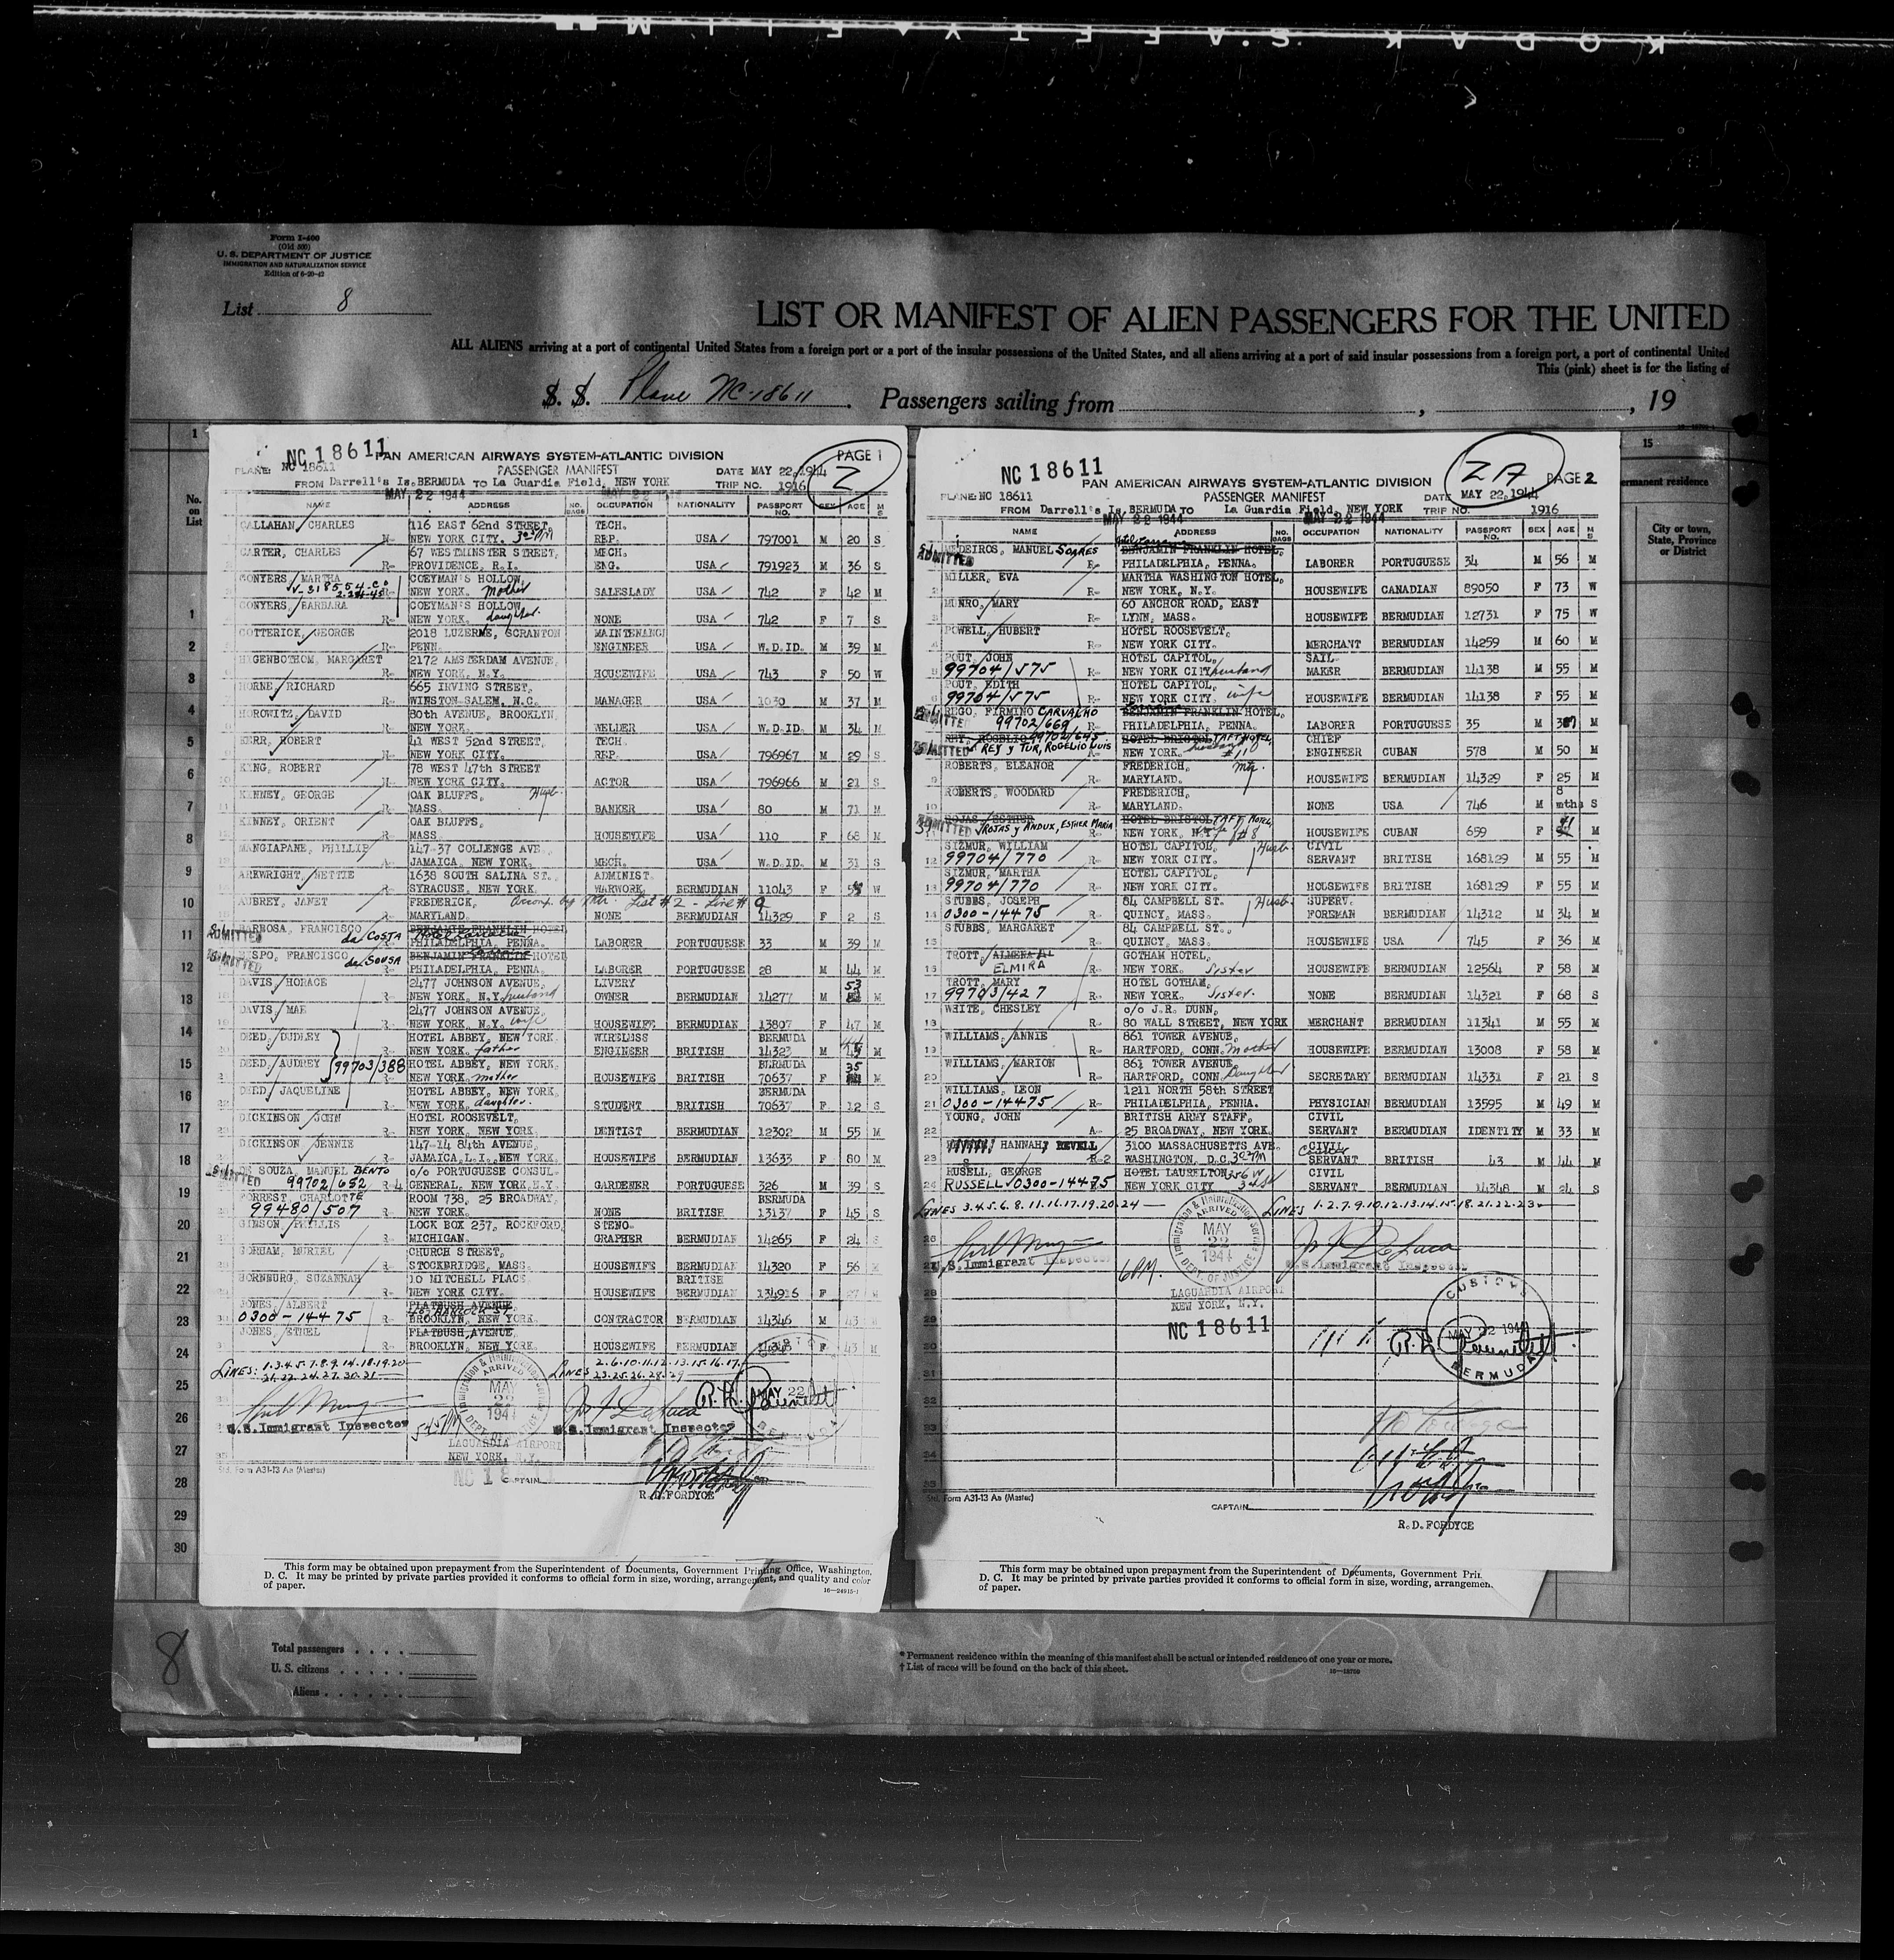 KODAK S.A.FETY FILM
Form I-400
(Old 500)
U. S. DEPARTMENT OF JUSTICE
IMMIGRATION AND NATURALIZATION SERVICE
Edition of 6-20-42
List 8
LIST OR MANIFEST OF ALIEN PASSENGERS FOR THE UNITED
ALL ALIENS arriving at a port of continental United States from a foreign port or a port of the insular possessions of the United States, and all aliens arriving at a port of said insular possessions from a foreign port, a port of continental United
This (pink) sheet is for the listing of
S. S. Plane NC-18611. Passengers sailing from , , 19
No. on List
NC 18611 PAN AMERICAN AIRWAYS SYSTEM-ATLANTIC DIVISION PAGE 1
PLANE: NC 18611 PASSENGER MANIFEST DATE MAY 22, 1944 2
FROM Darrell's Is. BERMUDA TO La Guardia Field, NEW YORK TRIP NO. 1916
MAY 22 1944
NAME ADDRESS NO. BAGS OCCUPATION NATIONALITY PASSPORT NO. SEX AGE M S
CALLAHAN, CHARLES 116 EAST 62nd STREET, TECH.
NEW YORK CITY. REP. USA 797001 M 20 S
CARTER, CHARLES 67 WESTMINSTER STREET, MECH.
PROVIDENCE, R.I. ENG. USA 791923 M 36 S
CONYERS, MARTHA COEYMAN'S HOLLOW,
NEW YORK. Mother SALESLADY USA 742 F 42 M
CONYERS, BARBARA COEYMAN'S HOLLOW,
NEW YORK. daughter. NONE USA 742 F 7 S
COTTERICK, GEORGE 2018 LUZERNE, SCRANTON MAINTENANC
PENN. ENGINEER USA W.D.ID. M 39 M
HIGENBOTHOM, MARGARET 2172 AMSTERDAM AVENUE,
NEW YORK, N.Y. HOUSEWIFE USA 743 F 50 W
HORNE, RICHARD 665 IRVING STREET,
WINSTON-SALEM, N.C. MANAGER USA 1030 M 37 M
HOROWITZ, DAVID 80th AVENUE, BROOKLYN,
NEW YORK. WELDER USA W.D.ID. M 34 M
KERR, ROBERT 41 WEST 52nd STREET, TECH.
NEW YORK CITY. REP. USA 796967 M 29 S
KING, ROBERT 78 WEST 47th STREET
NEW YORK CITY. ACTOR USA 796966 M 21 S
KINNEY, GEORGE OAK BLUFFS, Husb.
MASS. BANKER USA 80 M 71 M
KINNEY, ORIENT OAK BLUFFS,
MASS. HOUSEWIFE USA 110 F 68 M
MANGIAPANE, PHILLIP 147-37 COLLENGE AVE.
JAMAICA, NEW YORK. MECH. USA W.D.ID. M 31 S
ARKWRIGHT, NETTIE 1638 SOUTH SALINA ST., ADMINIST.
SYRACUSE, NEW YORK. WARWORK, BERMUDIAN 11043 F W
AUBREY, JANET FREDERICK, Accomp. by Mtr. List #2 - Line # 9
MARYLAND. NONE BERMUDIAN 14329 F 2 S
ADMITTED BARBOSA, FRANCISCO da COSTA BENJAMIN FRANKLIN HOTEL
PHILADELPHIA, PENNA. LABORER PORTUGUESE 33 M 39 M
ADMITTED FRANCISCO da SOUSA BENJAMIN FRANKLIN HOTEL
PHILADELPHIA, PENNA. LABORER PORTUGUESE 28 M 44 M
DAVIS, HORACE 2477 JOHNSON AVENUE, LIVERY 53
NEW YORK, N.Y. husband OWNER BERMUDIAN 14277 M M
DAVIS, MAE 2477 JOHNSON AVENUE,
NEW YORK, N.Y. wife HOUSEWIFE BERMUDIAN 13807 F 47 M
DEED, DUDLEY HOTEL ABBEY, NEW YORK. WIRELESS BERMUDA
NEW YORK. father ENGINEER BRITISH 14323 M 45 M
DEED, AUDREY 99703/388 HOTEL ABBEY, NEW YORK. BERMUDA 35
NEW YORK. mother HOUSEWIFE BRITISH 70637 F M
DEED, JAQUELINE HOTEL ABBEY, NEW YORK. BERMUDA
NEW YORK. daughter. STUDENT BRITISH 70637 F 12 S
DICKINSON, JOHN HOTEL ROOSEVELT,
NEW YORK, NEW YORK. DENTIST BERMUDIAN 12302 M 55 M
DICKINSON, JENNIE 147-14 84th AVENUE,
JAMAICA, L.I., NEW YORK. HOUSEWIFE BERMUDIAN 13633 F 80 M
ADMITTED DE SOUZA, MANUEL BENTO c/o PORTUGUESE CONSUL-
99702/652 GENERAL, NEW YORK, N.Y. GARDENER PORTUGUESE 326 M 39 S
FORREST, CHARLOTTE ROOM 738, 25 BROADWAY, BERMUDA
99480/507 NEW YORK. NONE BRITISH 13137 F 45 S
GIBSON, PHYLLIS LOCK BOX 237, ROCKFORD, STENO-
MICHIGAN. GRAPHER BERMUDIAN 14265 F 24 S
GORHAM, MURIEL CHURCH STREET,
STOCKBRIDGE, MASS. HOUSEWIFE BERMUDIAN 14320 F 56
HORNBURG, SUZANNAH 10 MITCHELL PLACE, BRITISH
NEW YORK CITY. HOUSEWIFE BERMUDIAN 134916 F
JONES, ALBERT FLATBUSH AVENUE,
0300-14475 BROOKLYN, NEW YORK. CONTRACTOR BERMUDIAN 14346 M 43
JONES, ETHEL FLATBUSH, AVENUE,
BROOKLYN, NEW YORK. HOUSEWIFE BERMUDIAN F 43 M
LINES: 1.3.4.5.7.8.9.14.18.19.20 LINES 2.6.10.11.12.13.15.16.17.
21.22.24.27.30.31 23.25.26.28.29
U.S. Immigrant Inspector U.S. Immigrant Inspector
ARRIVED MAY 22 1944
LAGUARDIA AIRPORT
NEW YORK, N.Y.
Std. Form A31-13 Aa (Master) CAPTAIN
R.D. FORDYCE
This form may be obtained upon prepayment from the Superintendent of Documents, Government Printing Office, Washington,
D. C. It may be printed by private parties provided it conforms to official form in size, wording, arrangement, and quality and color
of paper. 16-24915-1
NC 18611 PAN AMERICAN AIRWAYS SYSTEM-ATLANTIC DIVISION 2A PAGE 2
PLANE: NC 18611 PASSENGER MANIFEST DATE MAY 22, 1944
FROM Darrell's Is. BERMUDA TO La Guardia Field, NEW YORK TRIP NO. 1916
MAY 22 1944 MAY 22 1944
NAME ADDRESS NO. BAGS OCCUPATION NATIONALITY PASSPORT NO. SEX AGE M S
ADMITTED MEDEIROS, MANUEL SOARES BENJAMIN FRANKLIN HOTEL,
PHILADELPHIA, PENNA. LABORER PORTUGUESE 34 M 56 M
MILLER, EVA MARTHA WASHINGTON HOTEL,
NEW YORK, N.Y. HOUSEWIFE CANADIAN 89050 F 73 W
MUNRO, MARY 60 ANCHOR ROAD, EAST
LYNN, MASS. HOUSEWIFE BERMUDIAN 12731 F 75 W
POWELL, HUBERT HOTEL ROOSEVELT,
NEW YORK CITY. MERCHANT BERMUDIAN 14259 M 60 M
POUT, JOHN HOTEL CAPITOL, SAIL-
99704/575 NEW YORK CITY. husband MAKER BERMUDIAN 14138 M 55 M
POUT, EDITH HOTEL CAPITOL,
99704/575 NEW YORK CITY. wife HOUSEWIFE BERMUDIAN 14138 F 55 M
REGO, FIRMINO CARVALHO BENJAMIN FRANKLIN HOTEL,
99702/669 PHILADELPHIA, PENNA. LABORER PORTUGUESE 35 M M
REY, ROGELIO 99702/645 HOTEL BRISTOL TAFT HOTEL, CHIEF
ADMITTED REY y TUR, ROGELIO LUIS NEW YORK. husband #11 ENGINEER CUBAN 578 M 50 M
ROBERTS, ELEANOR FREDERICH, Mtr.
MARYLAND. HOUSEWIFE BERMUDIAN 14329 F 25 M
ROBERTS, WOODARD FREDERICH, 8
MARYLAND. NONE USA 746 M mths S
ROJAS, ESTHER HOTEL BRISTOL TAFT HOTEL, 41
ADMITTED ROJAS y ANDUX, ESTHER MARIA NEW YORK, N.Y. wife #8 HOUSEWIFE CUBAN 659 F M
SIZMUR, WILLIAM HOTEL CAPITOL, Husb. CIVIL
99704/770 NEW YORK CITY. SERVANT BRITISH 168129 M 55 M
SIZMUR, MARTHA HOTEL CAPITOL,
99704/770 NEW YORK CITY. HOUSEWIFE BRITISH 168129 F 55 M
STUBBS, JOSEPH 84 CAMPBELL ST. Husb. SUPERV.
0300-14475 QUINCY, MASS. FOREMAN BERMUDIAN 14312 M 34 M
STUBBS, MARGARET 84 CAMPBELL ST.,
QUINCY, MASS. HOUSEWIFE USA 745 F 36 M
TROTT, ALMENA GOTHAM HOTEL,
ELMIRA NEW YORK. Sister HOUSEWIFE BERMUDIAN 12564 F 58 M
TROTT, MARY HOTEL GOTHAM,
99703/427 NEW YORK. Sister. NONE BERMUDIAN 14321 F 68 S
WHITE, CHESLEY c/o J.R. DUNN,
80 WALL STREET, NEW YORK MERCHANT BERMUDIAN 11341 M 55 M
WILLIAMS, ANNIE 861 TOWER AVENUE,
HARTFORD, CONN. Mother HOUSEWIFE BERMUDIAN 13008 F 58 M
WILLIAMS, MARION 861 TOWER AVENUE,
HARTFORD, CONN. Daughter SECRETARY BERMUDIAN 14331 F 21 S
WILLIAMS, LEON 1211 NORTH 58th STREET
0300-14475 PHILADELPHIA, PENNA. PHYSICIAN BERMUDIAN 13595 M 49 M
YOUNG, JOHN BRITISH ARMY STAFF, CIVIL
25 BROADWAY, NEW YORK. SERVANT BERMUDIAN IDENTITY M 33 M
HANNAH, REVELL 3100 MASSACHUSETTS AVE. CIVIL
WASHINGTON, D.C. SERVANT BRITISH 43 M 44 M
RUSELL, GEORGE HOTEL LAURELTON, CIVIL
RUSSELL 0300-14475 NEW YORK CITY SERVANT BERMUDIAN 14348 M 24 S
LINES 3.4.5.6.8.11.16.17.19.20.24 LINES 1.2.7.9.10.12.13.14.15.18.21.22.23
Immigration & Naturalization Service
ARRIVED MAY 22 1944
DEPT. OF JUSTICE
U.S. Immigrant Inspector 6PM. U.S. Immigrant Inspector
LAGUARDIA AIRPORT
NEW YORK, N.Y.
NC 18611
CUSTOMS MAY 22 1944 BERMUDA
Std. Form A31-13 Aa (Master) CAPTAIN
R.D. FORDYCE
This form may be obtained upon prepayment from the Superintendent of Documents, Government Prin
D. C. It may be printed by private parties provided it conforms to official form in size, wording, arrangemen
of paper.
15
ermanent residence
City or town,
State, Province
or District
8
Total passengers
U. S. citizens
Aliens
* Permanent residence within the meaning of this manifest shall be actual or intended residence of one year or more.
† List of races will be found on the back of this sheet.